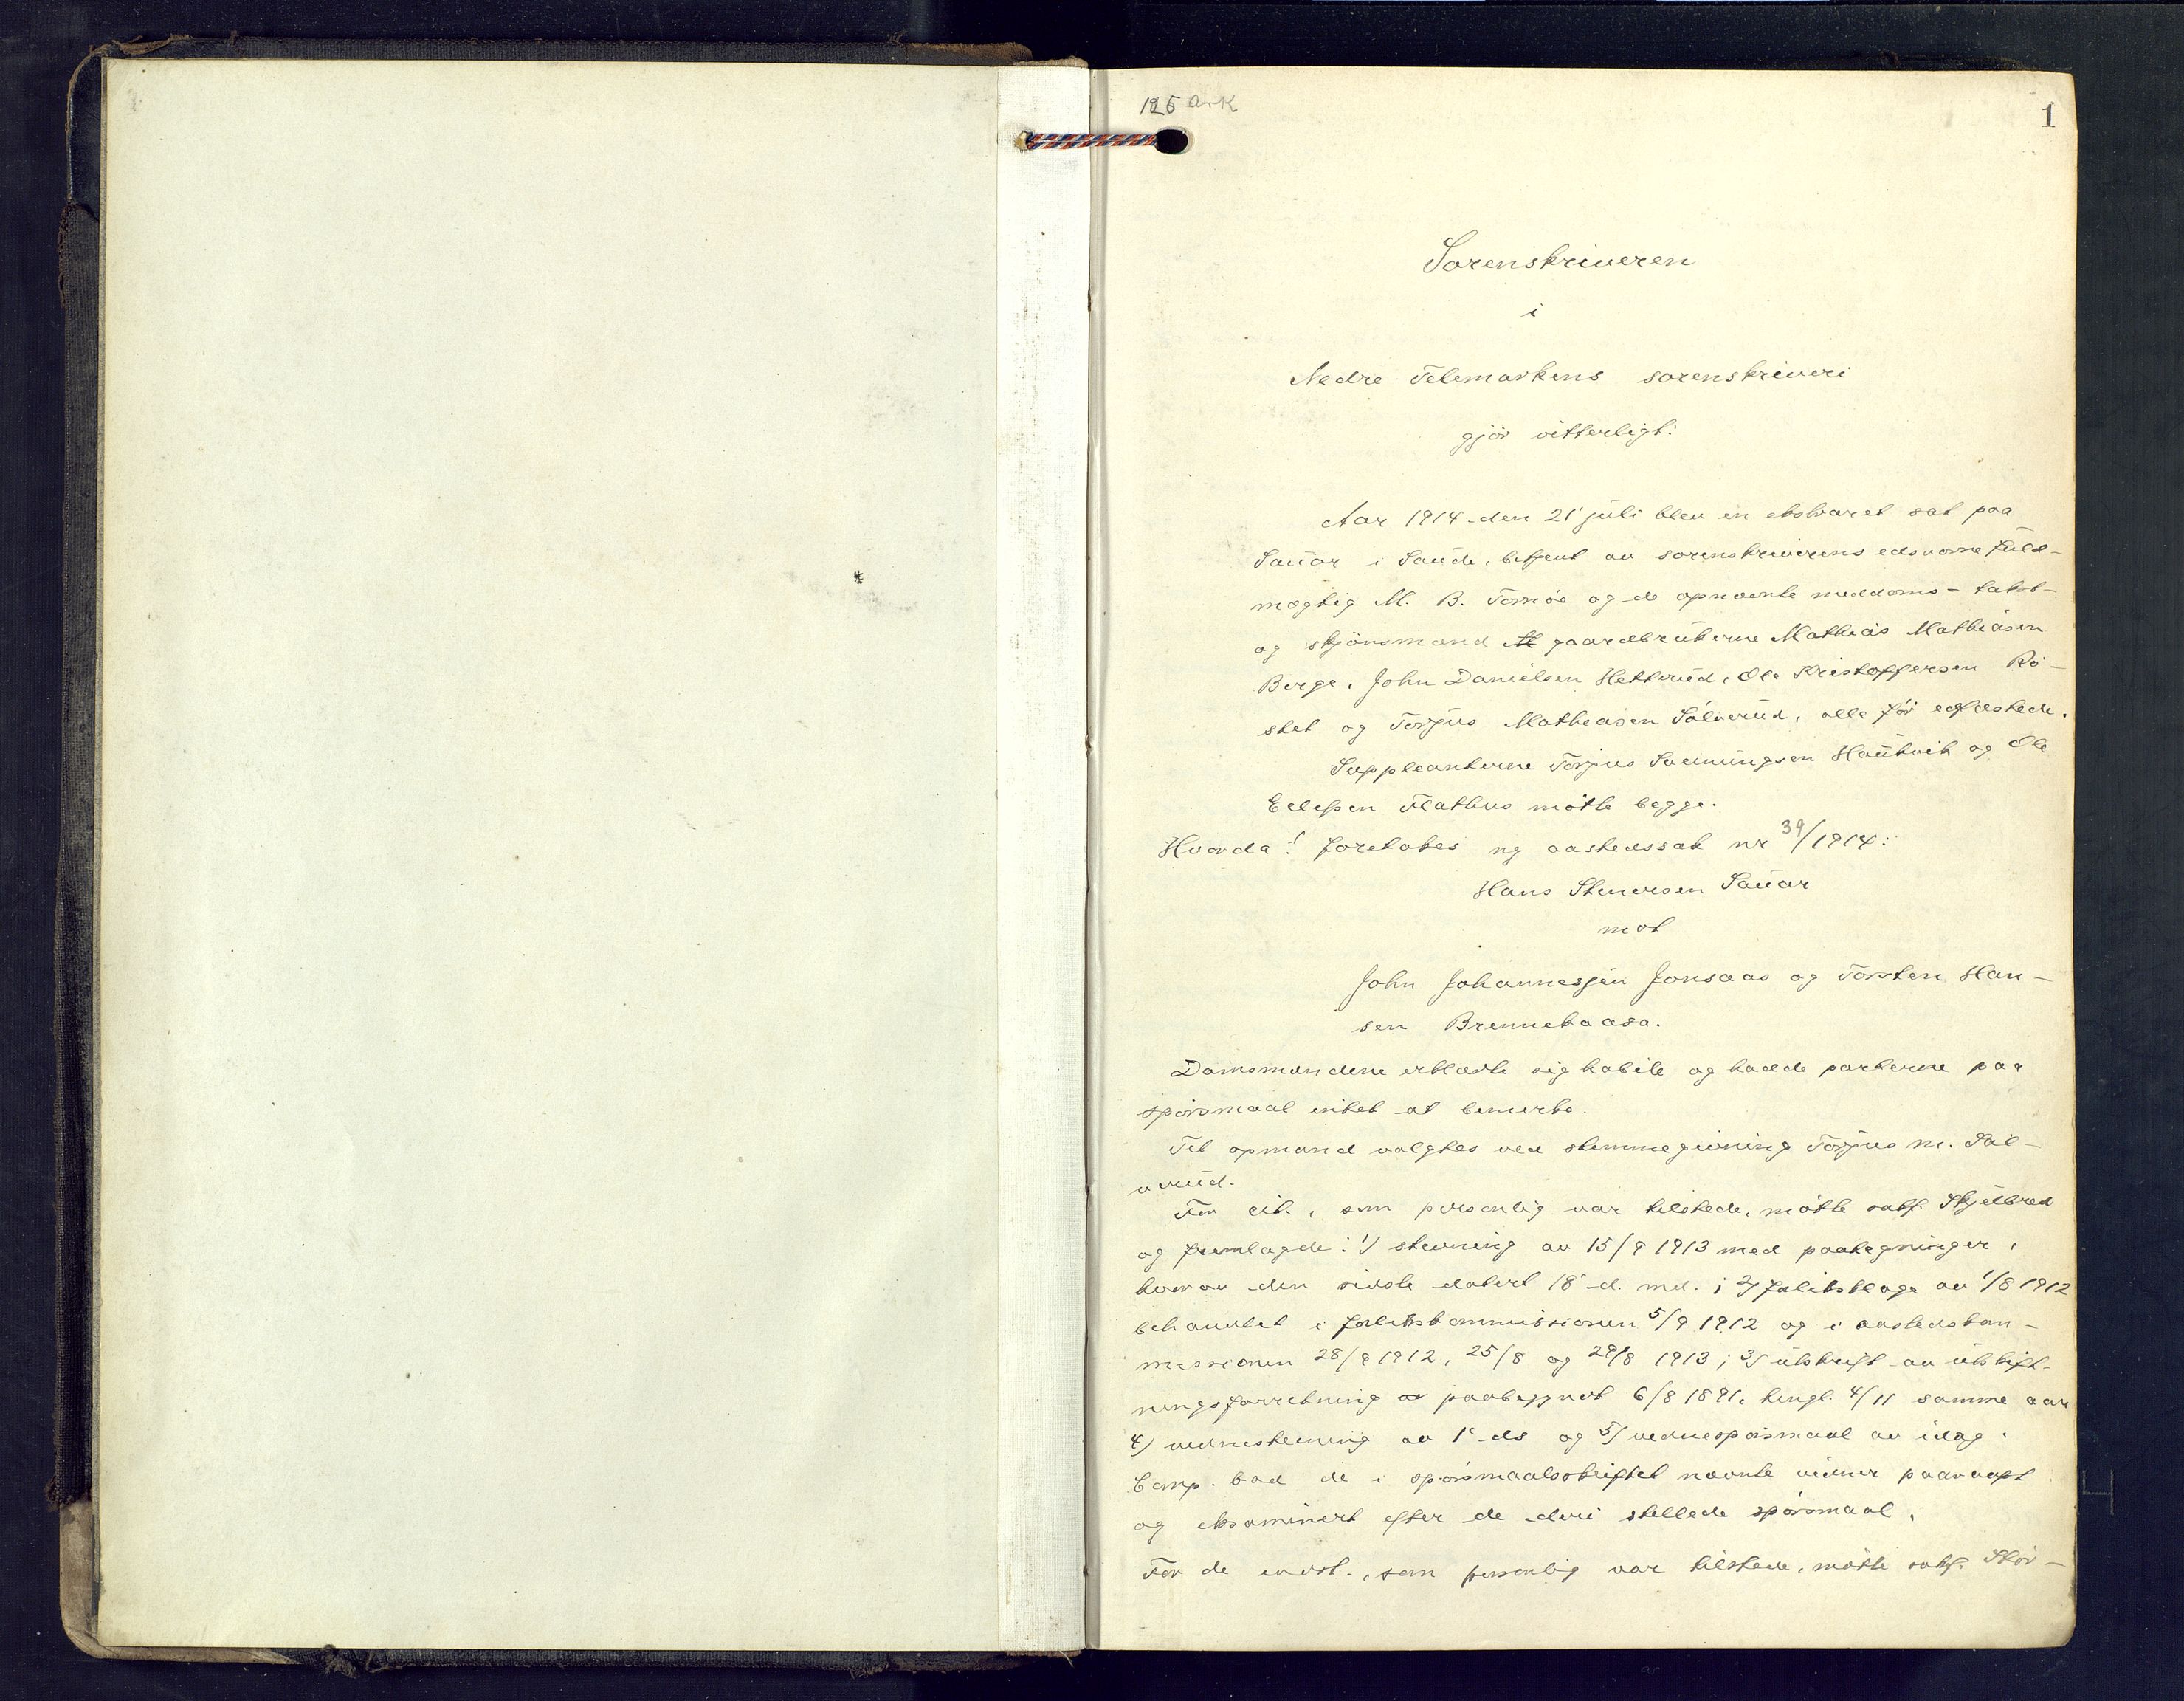 125 Ark
1
Sorenskriveren
i
Nedre Telemarkens sorenskriveri
gjör vitterligt:
Aar 1914 den 21' juli blev en ekstraret sat paa
Sauar i Saude, betjent av sorenskriverens edsvorne fuld-
mægtig M. B. Tornöe og de opnævnte meddoms- takst-
og skjönsmænd gaardbrukerne Mathias Mathiasen
Berge, John Danielsen Hetterud, Ole Kristoffersen Rö-
stet og Torjus Mathiasen Sölverud, alle för edfæstede.
Suppleanterne Torjus Sveinungsen Haukvik og Ole
Ellefsen Flathus mötte begge.
Hvorda: foretokes ny aastedssak nr 39/1914:
Hans Stenersen Sauar
mot
John Johannessen Jonsaas og Torsten Han-
sen Brennekaasa.
Domsmændene erklærte sig habile og hadde parterne paa
spörsmaal intet at bemerke.
Til opmand valgtes ved stemmegivning Torjus M. Söl-
verud.
For cit., som personlig var tilstede, mötte sakf. Skjelbred
og fremlagde: 1) stevning av 15/9 1913 med paategninger,
hvorav den sidste datert 18' d. md.; 2) forliksklage av 1/8 1912
behandlet i forlikskommissionen 5/9 1912 og i aastedskom-
missionen 28/9 1912, 25/8 og 29/8 1913; 3) utskrift av utskift-
ningsforretning paabegyndt 6/8 1891, tingl. 4/11 samme aar
4) vidnestevning av 1' ds og 5) vidnespörsmaal av idag.
Comp. bad de i spörsmaalsskriftet nævnte vidner paaropt
og eksaminert efter de deri stillede spörsmaal.
For de indst., som personlig var tilstede, mötte sakf. Stör-